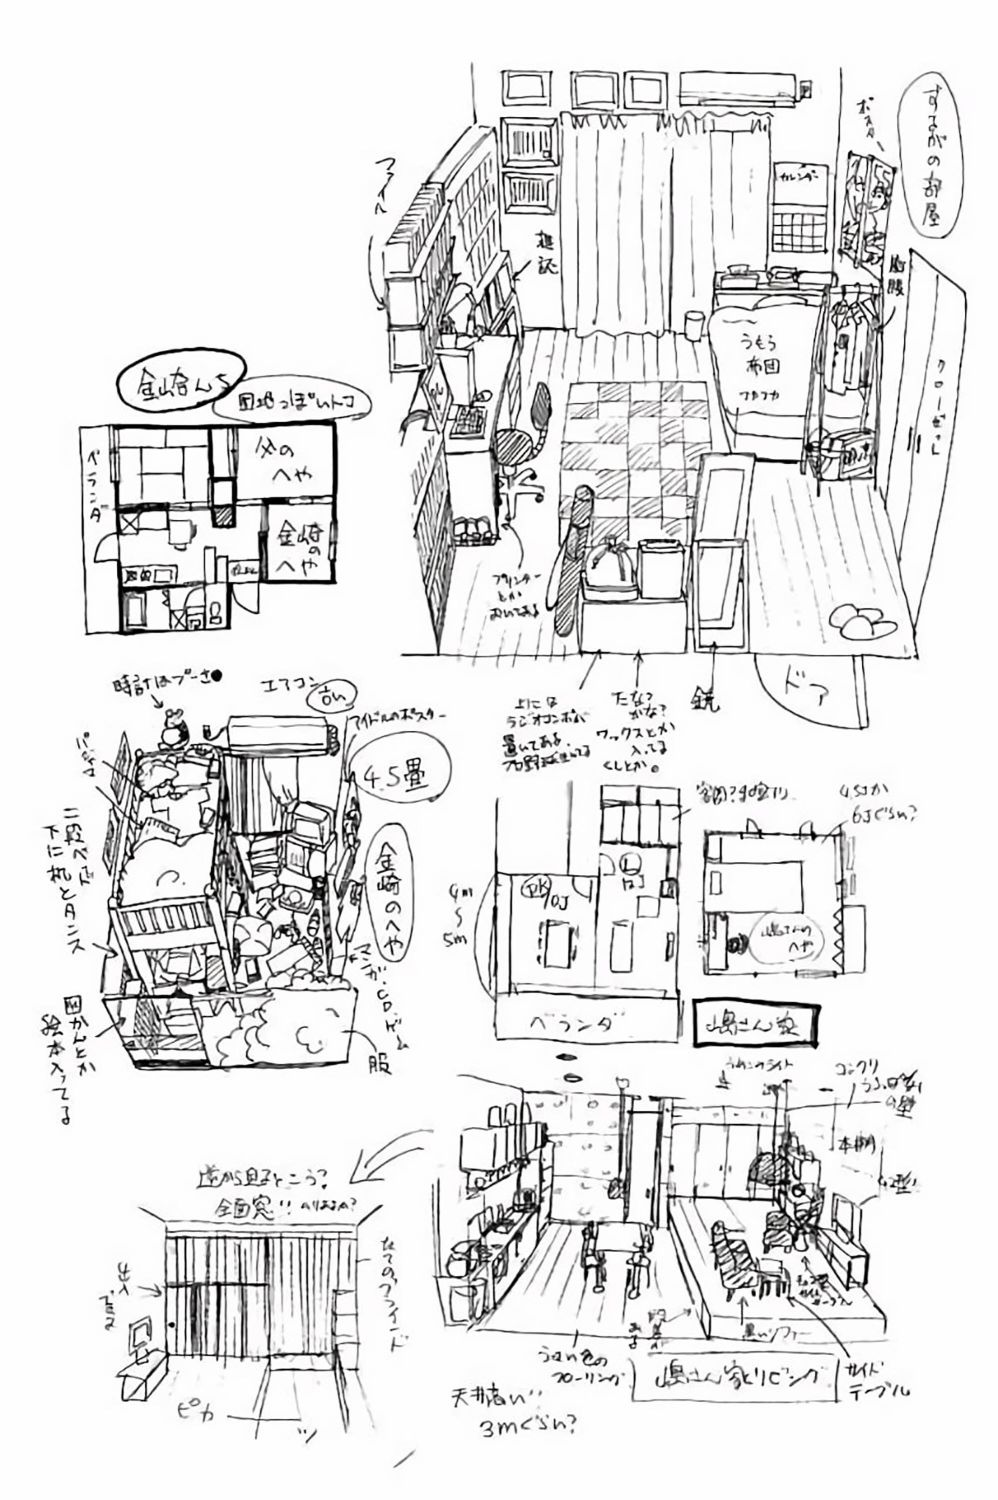 するがの部屋
ポスター
ファイル
雑誌
カレンダー
うもう
布団
フカフカ
クローゼット
プリンター
とか
おいてある
上には
ラジオコンポが
置いてある
たな?
かな?
ワックスとか
入ってる
くしとか。
銃
ドア
金崎んち
団地っぽいトコ
ベランダ
父の
へや
金崎の
へや
時計はプーさ●
エアコン
古い
アイドルのポスター
4.5畳
パジャマ
二段ベッド
下に机とタンス
金崎のへや
マンガ.CD.ゲーム
図かんとか
絵本入ってる
服
4.5Jか
6Jぐらい?
4m
5
5m
DK
10J
L
12J
ベランダ
嶋さんの
へや
嶋さん家
コンクリ
の壁
本棚
42型
黒いソファー
サイド
テーブル
段差が
ある
うすい色の
フローリング
嶋さん家とリビング
天井高い!!
3mぐらい?
逆から見るとこう?
全面窓!!
たてのブラインド
ピカ
ッ